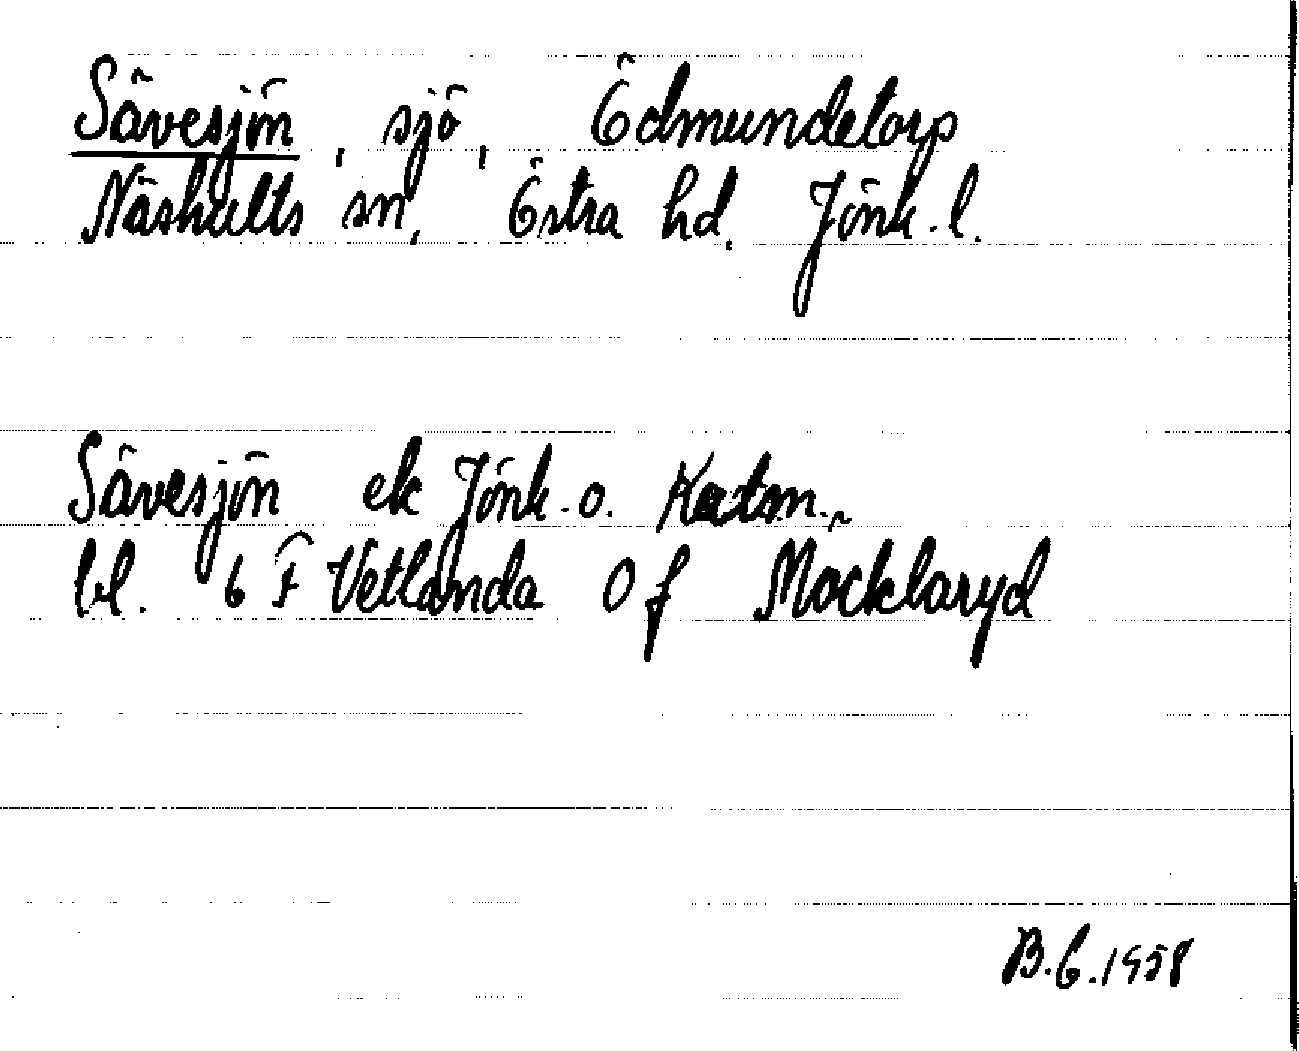 Sävesjön, sjö, Ödmundetorp
Näshults sn, Östra hd. Jönk. l.
Sävesjön ek Jönk. o.
bl. 6 F Vetlanda 0 f Möcklaryd
B.G. 1958